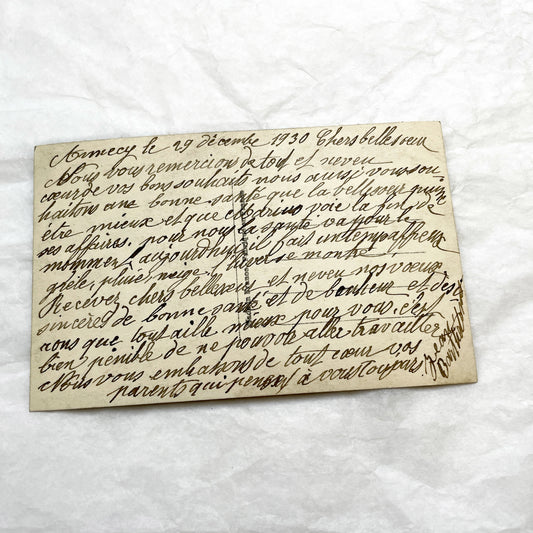 Annecy le 29 décembre 1930 Chers bellesœur
et neveu
Nous vous remercion de tout
cœur de vos bons souhaits nous aussi vous sou
haitons une bonne santé que la bellesœur puisse
être mieux et que voie la fin de
ses affaires. pour nous la santé va pour le
moment, aujourdhuy il fait un temps affreux
grele, pluie, neige. se montre
Recever chers bellesœur et neveu nos vœux
sincères de bonne santé et de bonheur et dési
rons que tout aille mieux pour vous, c'es
bien penible de ne pouvoir aller travailler
Nous vous embrasons de tout cœur vos
parents qui pense à vous toujours